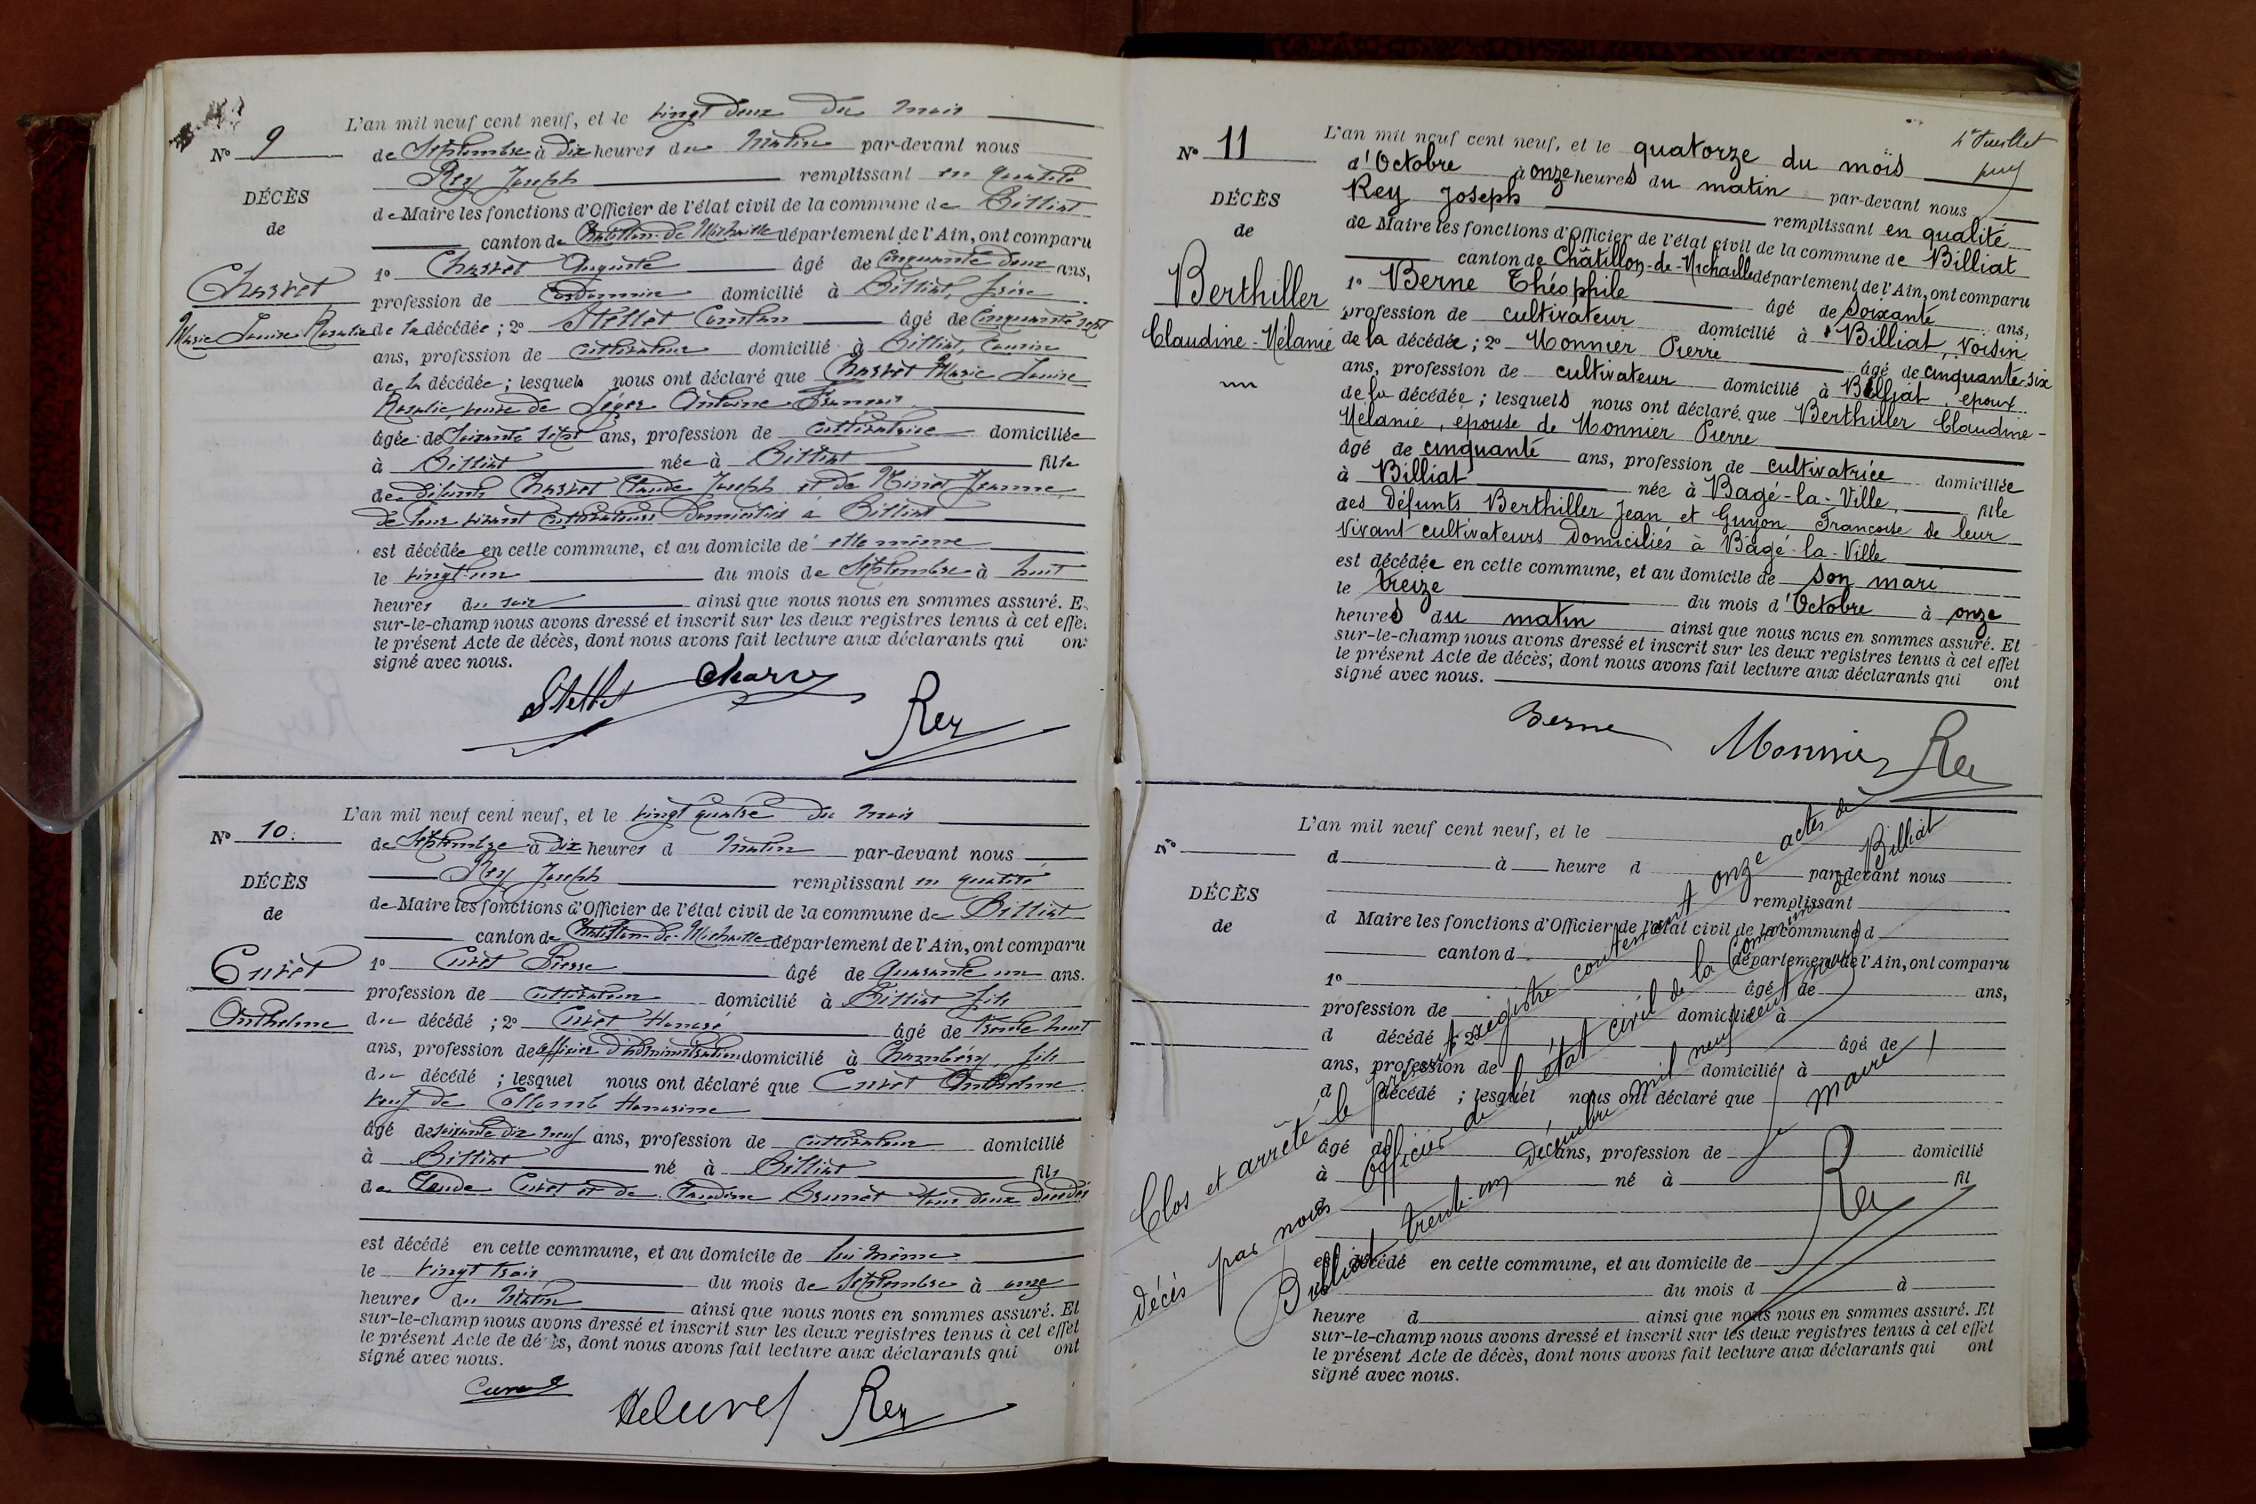 L'an mil neuf cent neuf, et le vingt deux du mois
N° 9
de Septembre à dix heures du matin par-devant nous
Rey Joseph remplissant en qualité
DÉCÈS
de Maire les fonctions d'Officier de l'état civil de la commune de Billiat
de
canton de Châtillon-de-Michaille département de l'Ain, ont comparu
Charvet
1° Charvet Auguste âgé de cinquante deux ans,
profession de Cordonnier domicilié à Billiat, frère
Marie Louise Rosalie
de la décédée ; 2° Stellet Constan âgé de cinquante sept
ans, profession de cultivateur domicilié à Billiat, cousin
de la décédée ; lesquels nous ont déclaré que Charvet Marie Louise
Rosalie, veuve de Léger Antoine François
âgée de soixante sept ans, profession de cultivatrice domiciliée
à Billiat née à Billiat fille
de défunts Charvet Claude Joseph et de Jeanne
de leur vivant cultivateurs domiciliés à Billiat
est décédée en cette commune, et au domicile de elle même
le vingt-un du mois de Septembre à huit
heures du soir ainsi que nous nous en sommes assuré. E
sur-le-champ nous avons dressé et inscrit sur les deux registres tenus à cet effe
le présent Acte de décès, dont nous avons fait lecture aux déclarants qui on
signé avec nous.
Stellet Charvet
Rey
L'an mil neuf cent neuf, et le vingt quatre du mois
N° 10.
de Septembre à dix heures d matin par-devant nous
Rey Joseph remplissant en qualité
DÉCÈS
de Maire les fonctions d'Officier de l'état civil de la commune de Billiat
de
canton de Châtillon-de-Michaille département de l'Ain, ont comparu
Curvet
1° Curvet Pierre âgé de quarante un ans.
profession de cultivateur domicilié à Billiat fils
Anthelme
du décédé ; 2° Curvet Honoré âgé de trente huit
ans, profession de officier d'administration domicilié à Chambéry, fils
du décédé ; lesquel nous ont déclaré que Curvet Anthelme
veuf de Collomb Honorine
âgé de soixante dix neuf ans, profession de cultivateur domicilié
à Billiat né à Billiat fils
de Claude Curvet et de Claudine Brunet tous deux décédés
est décédé en cette commune, et au domicile de lui même
le vingt trois du mois de Septembre à onze
heures du matin ainsi que nous nous en sommes assuré. Et
sur-le-champ nous avons dressé et inscrit sur les deux registres tenus à cet effet
le présent Acte de décès, dont nous avons fait lecture aux déclarants qui ont
signé avec nous.
Rey
4e feuillet
L'an mil neuf cent neuf, et le quatorze du mois
N° 11
d'Octobre à onze heures du matin par-devant nous
Rey Joseph remplissant en qualité
DÉCÈS
de Maire les fonctions d'Officier de l'état civil de la commune de Billiat
de
canton de Châtillon-de-Michaille département de l'Ain, ont comparu
Berthiller
1° Berne Théophile âgé de soixante ans,
profession de cultivateur domicilié à Billiat, voisin
Claudine-Mélanie
de la décédée ; 2° Monnier Pierre âgé de cinquante-six
ans, profession de cultivateur domicilié à Billiat, époux
de la décédée ; lesquels nous ont déclaré que Berthiller Claudine-
Mélanie, épouse de Monnier Pierre
âgé de cinquante ans, profession de cultivatrice domiciliée
à Billiat née à Bagé-la-Ville, fille
des défunts Berthiller Jean et Guyon Françoise de leur
vivant cultivateurs domiciliés à Bagé-la-Ville
est décédée en cette commune, et au domicile de son mari
le treize du mois d'Octobre à onze
heures du matin ainsi que nous nous en sommes assuré. Et
sur-le-champ nous avons dressé et inscrit sur les deux registres tenus à cet effet
le présent Acte de décès, dont nous avons fait lecture aux déclarants qui ont
signé avec nous.
Berne Monnier Rey
L'an mil neuf cent neuf, et le
N°
d à heure d par-devant nous
remplissant
DÉCÈS
d Maire les fonctions d'Officier de l'état civil de la commune d
de
canton d département de l'Ain, ont comparu
1° âgé de ans,
profession de domicilié à
d décédé ; 2° âgé de
ans, profession de domicilié à
d décédé ; lesquel nous ont déclaré que
âgé de ans, profession de domicilié
à né à fil
est décédé en cette commune, et au domicile de
le du mois d à
heure d ainsi que nous nous en sommes assuré. Et
sur-le-champ nous avons dressé et inscrit sur les deux registres tenus à cet effet
le présent Acte de décès, dont nous avons fait lecture aux déclarants qui ont
signé avec nous.
Clos et arrêté le présent registre contenant onze actes de
décès par nous Officier de l'état civil de la Commune de Billiat
Billiat trente-un décembre mil neuf cent neuf
Le maire
Rey